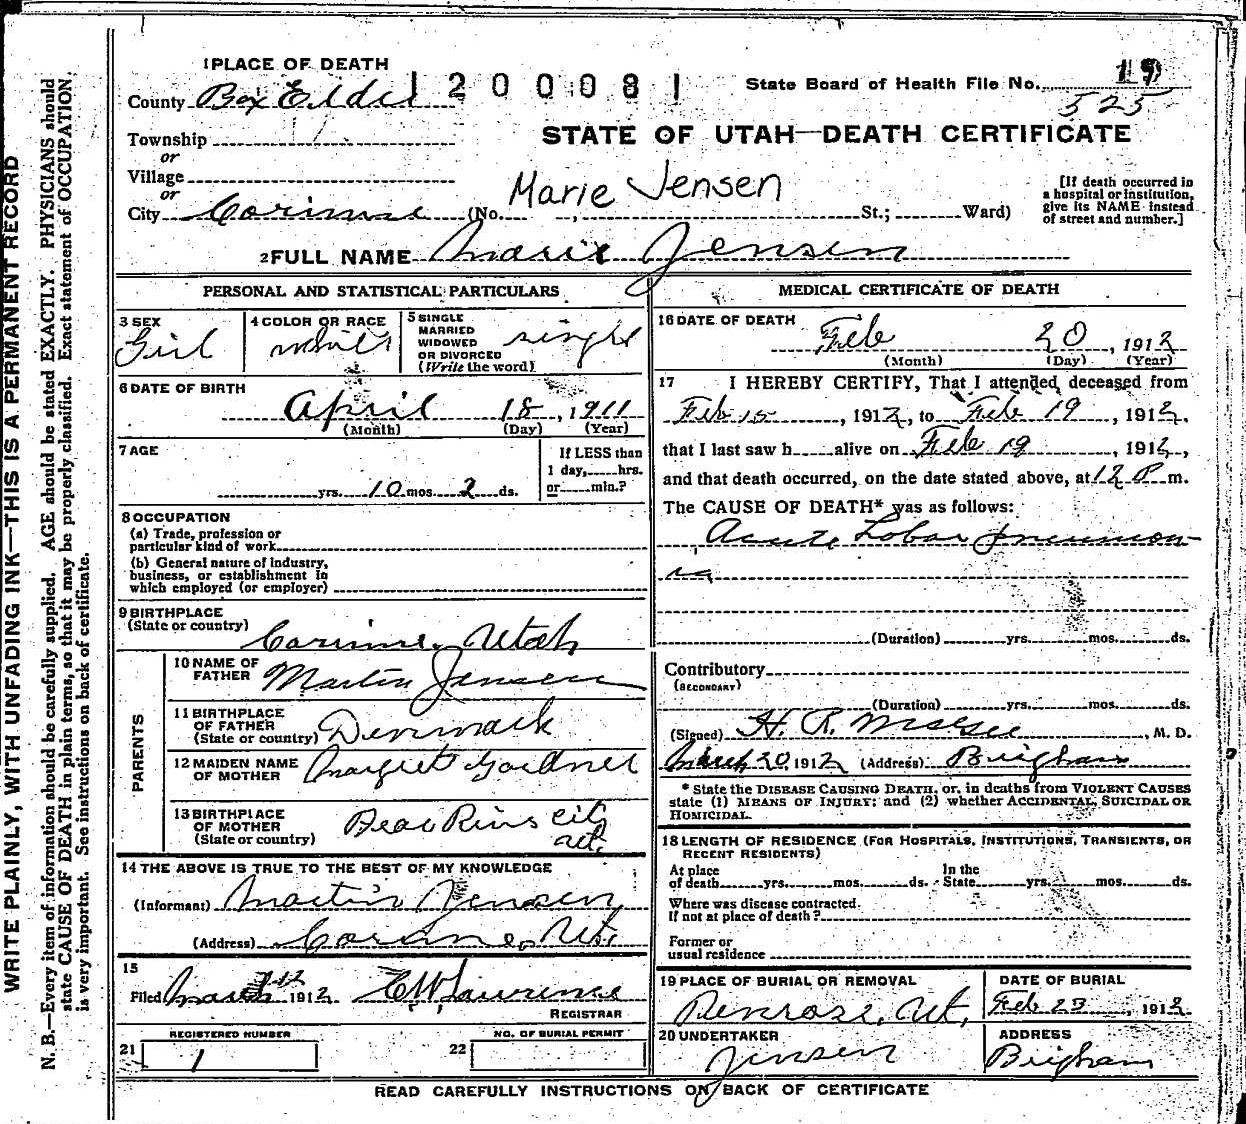 1 PLACE OF DEATH
1200081
State Board of Health File No. 19
County Box Elder
525
STATE OF UTAH—DEATH CERTIFICATE
Township
or
Village
or
City Corinne (No. , St.; Ward)
Marie Jensen
[If death occurred in
a hospital or institution,
give its NAME instead
of street and number.]
2 FULL NAME Marie Jensen
PERSONAL AND STATISTICAL PARTICULARS
3 SEX
Girl
4 COLOR OR RACE
white
5 SINGLE
MARRIED
WIDOWED
OR DIVORCED
(Write the word)
single
6 DATE OF BIRTH
April 18, 1911
(Month) (Day) (Year)
7 AGE
yrs. 10 mos. 2 ds.
If LESS than
1 day, hrs.
or min.?
8 OCCUPATION
(a) Trade, profession or
particular kind of work
(b) General nature of industry,
business, or establishment in
which employed (or employer)
9 BIRTHPLACE
(State or country)
Corinne, Utah
PARENTS
10 NAME OF
FATHER
Martin Jensen
11 BIRTHPLACE
OF FATHER
(State or country)
Denmark
12 MAIDEN NAME
OF MOTHER
Margret Gardner
13 BIRTHPLACE
OF MOTHER
(State or country)
Bear River city
Ut.
14 THE ABOVE IS TRUE TO THE BEST OF MY KNOWLEDGE
(Informant) Martin Jensen
(Address) Corinne, Ut.
15
Filed March 7th 1912 E W Lawrence
REGISTRAR
REGISTERED NUMBER
21 1
NO. OF BURIAL PERMIT
22
MEDICAL CERTIFICATE OF DEATH
16 DATE OF DEATH
Feb 20, 1912
(Month) (Day) (Year)
17 I HEREBY CERTIFY, That I attended deceased from
Feb 15, 1912, to Feb 19, 1912,
that I last saw h alive on Feb 19, 1912,
and that death occurred, on the date stated above, at 12 P m.
The CAUSE OF DEATH* was as follows:
Acute Lobar pneumon-
ia
(Duration) yrs. mos. ds.
Contributory
(SECONDARY)
(Duration) yrs. mos. ds.
(Signed) H. R. McGee, M. D.
March 20, 1912 (Address) Brigham
* State the DISEASE CAUSING DEATH, or, in deaths from VIOLENT CAUSES
state (1) MEANS OF INJURY; and (2) whether ACCIDENTAL, SUICIDAL OR
HOMICIDAL.
18 LENGTH OF RESIDENCE (FOR HOSPITALS, INSTITUTIONS, TRANSIENTS, OR
RECENT RESIDENTS)
At place
of death yrs. mos. ds.
In the
State yrs. mos. ds.
Where was disease contracted.
If not at place of death?
Former or
usual residence
19 PLACE OF BURIAL OR REMOVAL
Penrose, Ut.
DATE OF BURIAL
Feb 23, 1912
20 UNDERTAKER
Jensen
ADDRESS
Brigham
READ CAREFULLY INSTRUCTIONS ON BACK OF CERTIFICATE
WRITE PLAINLY, WITH UNFADING INK—THIS IS A PERMANENT RECORD
N. B.—Every item of information should be carefully supplied. AGE should be stated EXACTLY. PHYSICIANS should
state CAUSE OF DEATH in plain terms, so that it may be properly classified. Exact statement of OCCUPATION
is very important. See instructions on back of certificate.